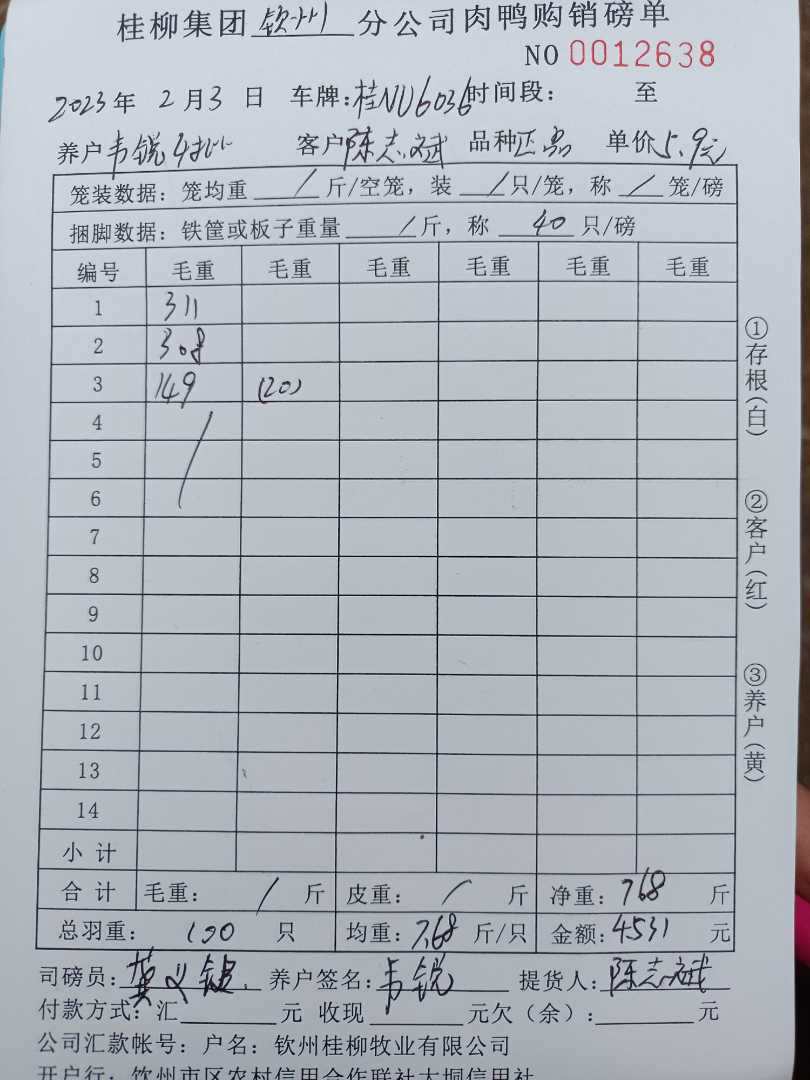 桂柳集团 钦州 分公司肉鸭购销磅单
NO 0012638
2023年 2月3日 车牌:桂NU6036 时间段: 至
养户 韦锐 客户 陈志斌 品种 正品 单价 5.9元
笼装数据:笼均重 / 斤/空笼,装 / 只/笼,称 / 笼/磅
捆脚数据:铁筐或板子重量 / 斤,称 40 只/磅
编号 毛重 毛重 毛重 毛重 毛重 毛重
1 311
2 308
3 149 (20)
4 /
5
6
7
8
9
10
11
12
13
14
小 计
合 计 毛重: / 斤 皮重: / 斤 净重: 768 斤
总羽重: 100 只 均重: 7.68 斤/只 金额: 4531 元
司磅员: 养户签名: 韦锐 提货人: 陈志斌
付款方式:汇 元 收现 元欠(余): 元
公司汇款帐号:户名:钦州桂柳牧业有限公司
开户行:钦州市区农村信用合作联社大垌信用社
①存根(白)
②客户(红)
③养户(黄)